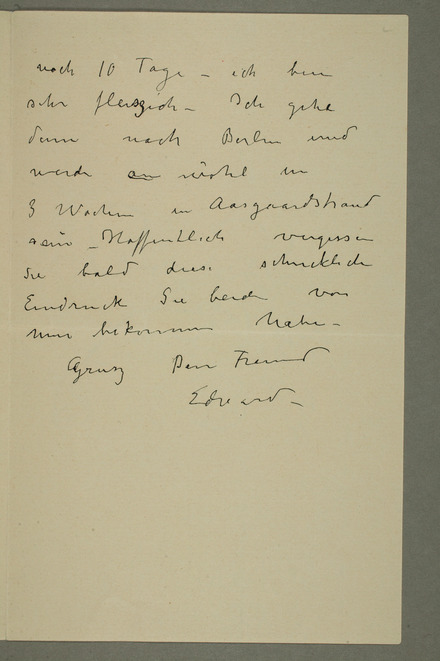 noch 10 Tage – ich bin
sehr fleiszich – Ich gehe
dann nach Berlin und
werde wohl in
3 Wochen in Aasgaardstrand
sein – Hoffentlich vergessen
Sie bald diese schrecklich
Eindruck Sie beide von
mir bekommen habe –
Grusz Dein Freund
Edvard –